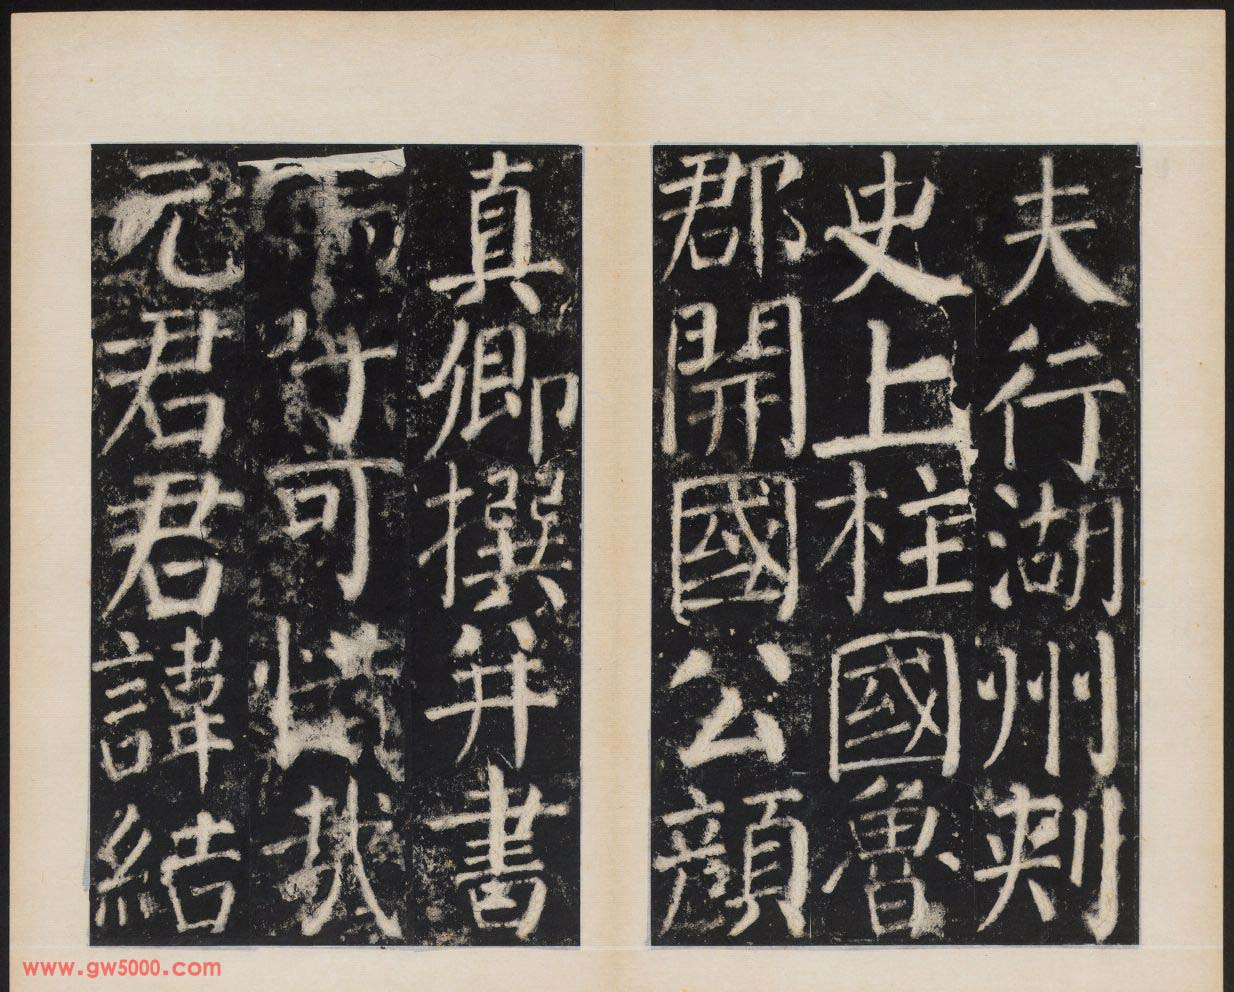 夫行湖州刾
史上柱國魯
郡開國公顔
真卿撰并書
可惜哉
元君君諱結
www.gw5000.com